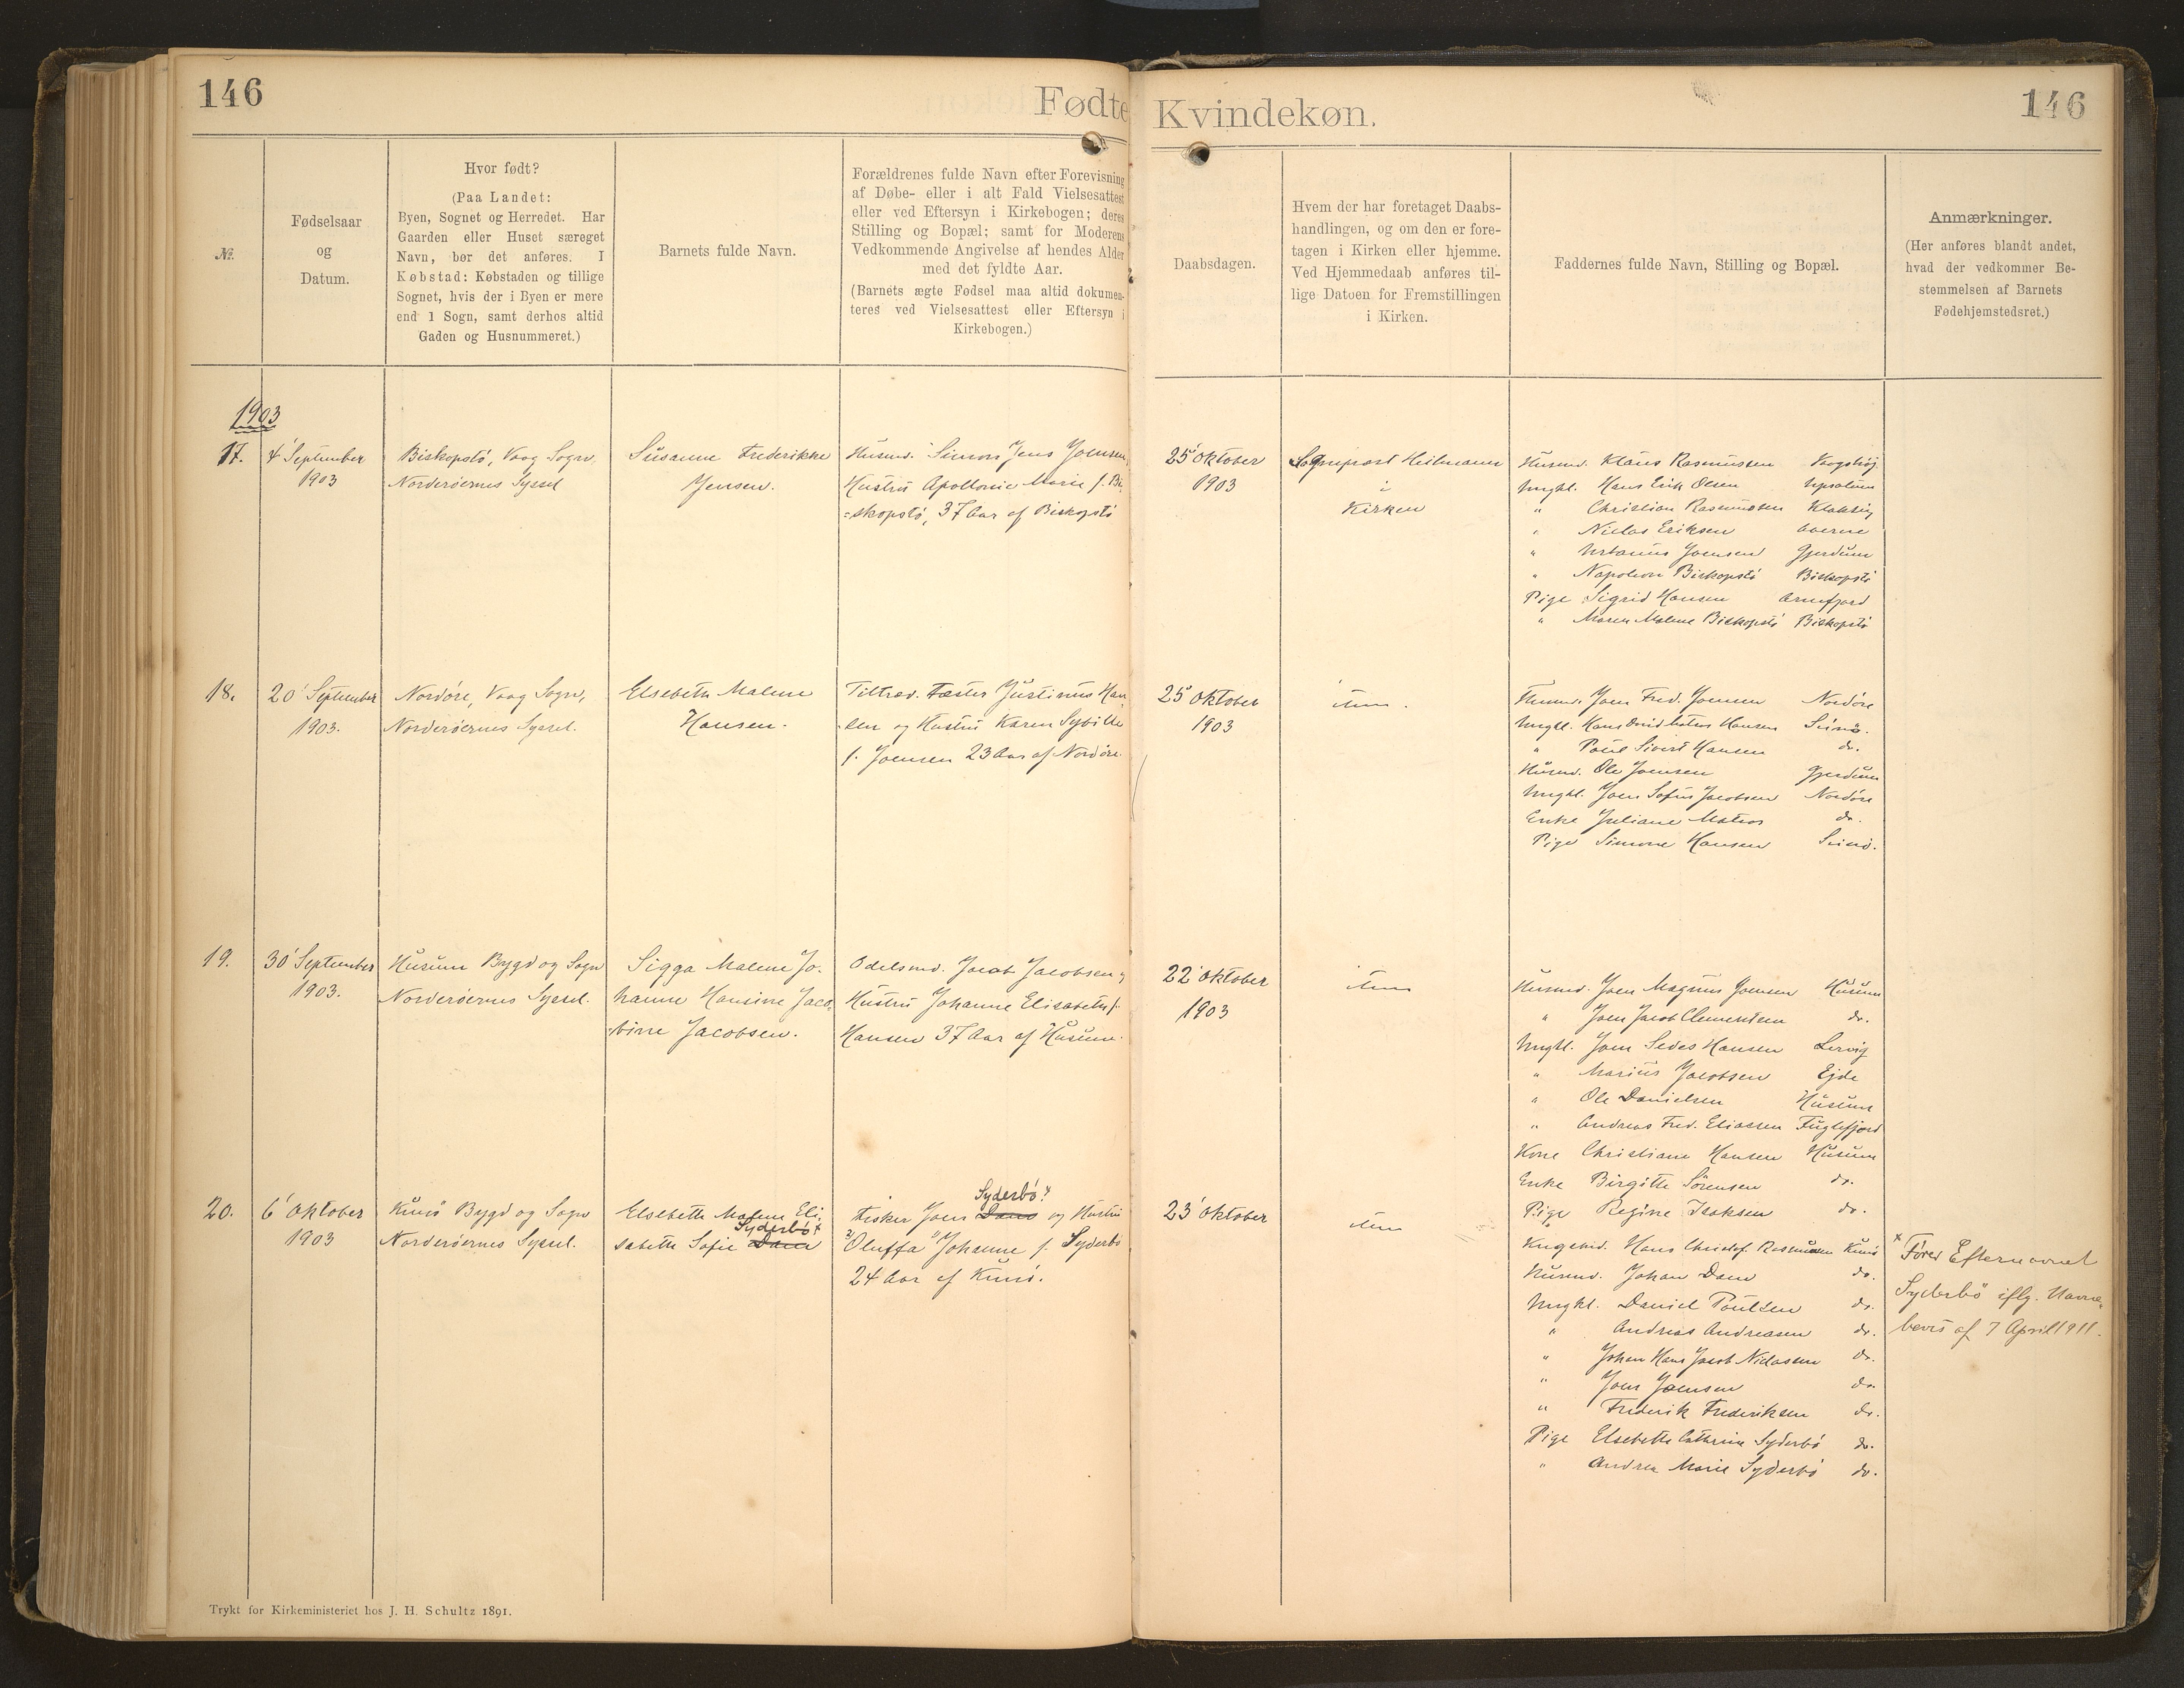 146
Fødte
Kvindekøn.
146
№
Fødselsaar
og
Datum.
Hvor født?
(Paa Landet:
Byen, Sognet og Herredet. Har
Gaarden eller Huset særeget
Navn, bør det anføres. I
Købstad: Købstaden og tillige
Sognet, hvis der i Byen er mere
end 1 Sogn, samt derhos altid
Gaden og Husnummeret.)
Barnets fulde Navn.
Forældrenes fulde Navn efter Forevisning
af Døbe- eller i alt Fald Vielsesattest
eller ved Eftersyn i Kirkebogen; deres
Stilling og Bopæl; samt for Moderens
Vedkommende Angivelse af hendes Alder
med det fyldte Aar.
(Barnets ægte Fødsel maa altid dokumen-
teres ved Vielsesattest eller Eftersyn i
Kirkebogen.)
Daabsdagen.
Hvem der har foretaget Daabs-
handlingen, og om den er fore-
tagen i Kirken eller hjemme.
Ved Hjemmedaab anføres til-
lige Datoen for Fremstillingen
i Kirken.
Faddernes fulde Navn, Stilling og Bopæl.
Anmærkninger.
(Her anføres blandt andet,
hvad der vedkommer Be-
stemmelsen af Barnets
Fødehjemstedsret.)
1903
17.
4' September
1903
Biskopstö, Vaag Sogn,
Norderöernes Syssel
Susanne Frederikke
Jensen.
Husmd. Simon Jens Joensen,
Hustru Apollonie Marie f. Bi-
skopstö, 37 Aar af Biskopstö
25' Oktober
1903
Sognepræst Heilmann
i
Kirken
Husmd. Klaus Rasmussen
Ungkl. Hans Erik Olsen
" Christian Rasmussen Klaksvig
" Niclas Eriksen
" Joensen Gjerdum
" Napoleon Biskopstö Biskopstö
Pige Sigrid Hansen Arnefjord
" Maren Malene Biskopstö Biskopstö
18.
20' September
1903.
Nordöre, Vaag Sogn,
Norderöernes Syssel.
Elsebeth Malene
Hansen.
Tiltræd. Fæster Justinus Han-
sen og Hustru Karen Sybille
f. Joensen 23 Aar af Nordöre.
25' Oktober
1903
item.
Husmd. Joen Fred. Joensen Nordöre
Ungkl. Hans David Matras Hansen Svinö.
" Poul Sivert Hansen do.
Husmd. Ole Joensen Gjerdum
Ungkl. Joen Sofus Jacobsen Nordöre
Enke Juliane Matras do.
Pige Simone Hansen Svinö.
19.
30' September
1903.
Husum Bygd og Sogn
Norderöernes Syssel.
Sigga Malene Jo-
hanne Hansine Jaco-
bine Jacobsen.
Odelsmd. Jacob Jacobsen og
Hustru Johanne Elisabeth f.
Hansen 37 Aar af Husum.
22' Oktober
1903
item
Husmd. Joen Magnus Joensen Husum
" Joen Jacob Clementsen do.
Ungkl. Joen Hansen Lervig
" Marius Jacobsen Ejde
" Ole Danielsen Husum
" Andreas Fred. Eliassen Fuglefjord
Kone Christiane Hansen Husum
Enke Birgitte Sörensen do.
Pige Regine Isaksen do.
20.
6' Oktober
1903
Kunö Bygd og Sogn
Norderöernes Syssel.
Elsebeth Malene Eli-
Syderbö x
sabeth Sofie Dam
Syderbö x
Fisker Joen Dam og Hustru
"Oluffa" Johanne f. Syderbö
24 Aar af Kunö.
23' Oktober
item
Kngsbd. Hans Christof. Rasmussen Kunö
Husmd. Johan Dam do.
Ungkl. Daniel Poulsen do.
" Andreas Andreasen do.
" Johan Hans Jacob Niclassen do.
" Joen Joensen do.
" Frederik Frederiksen do.
Pige Elsebeth Cathrine Syderbö do.
" Andrea Marie Syderbö do.
x Fører Efternavnet
Syderbö iflg. Navne-
bevis af 7 April 1911.
Trykt for Kirkeministeriet hos J. H. Schultz 1891.